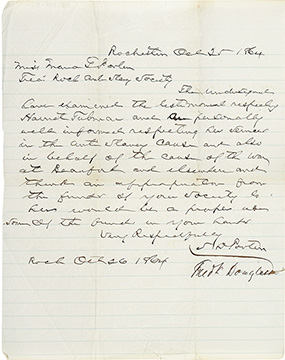 Rochester Oct 25 1864
Miss Maria G Porter
Trea Roch Anti Slavy Society
The undersigned
have examined the testimonial respecting
Harriet Tubman and are personally
well informed respecting her services
in the Anti Slavery Cause and also
in behalf of the cause of the war
at Beaufort and elsewhere and
thinks an appropriation from
the funds of your Society to
her would be a proper use
of the funds in your hands
Very Respectfully
Porter
Roch Oct 26 1864
Fredk Douglass